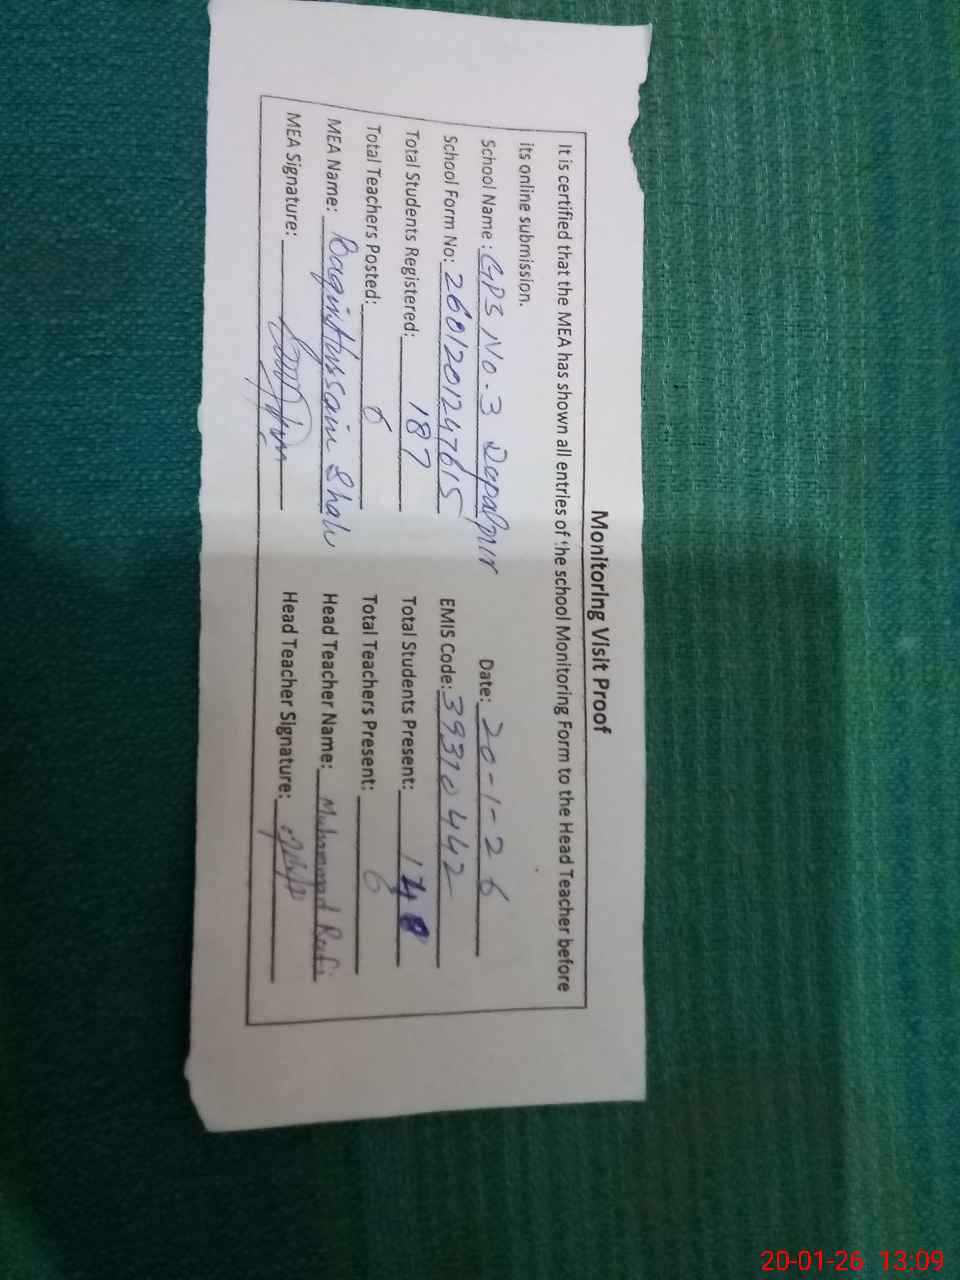 Monitoring Visit Proof
It is certified that the MEA has shown all entries of the school Monitoring Form to the Head Teacher before
its online submission.
School Name: GPS No. 3 Depalpur Date: 20-1-26
School Form No: 2601201247615 EMIS Code: 39310442
Total Students Registered: 187 Total Students Present:
Total Teachers Posted: 6 Total Teachers Present: 6
MEA Name: Baqir Hussain Shah Head Teacher Name: Muhammad Rafi
MEA Signature: Head Teacher Signature:
20-01-26 13:09